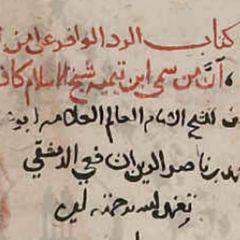 كتاب الرد الوافر على من
أن من سمى ابن تيمية شيخ الاسلام كافر
للشيخ الامام العالم العلامه ابو
ناصر الدين الشافعي الدمشقي
تغمده الله برحمته امين